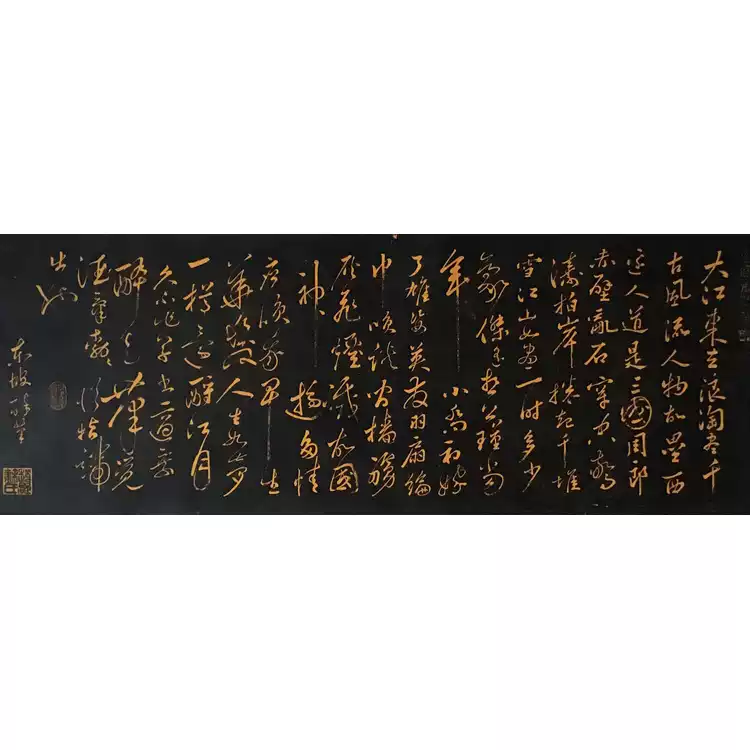 大江東去浪淘盡千
古風流人物故壘西
邊人道是三國周郎
赤壁亂石穿空驚
濤拍岸捲起千堆
雪江山如畫一時多少
豪傑遙想公瑾當
年小喬初嫁
了雄姿英發羽扇綸
巾笑談間檣艣
灰飛煙滅故國
神遊多情
應笑我早生
華髮人生如夢
一樽還酹江月
久不作草書適乘
醉走筆覺
酒氣勃勃從指端
出也
東坡醉筆